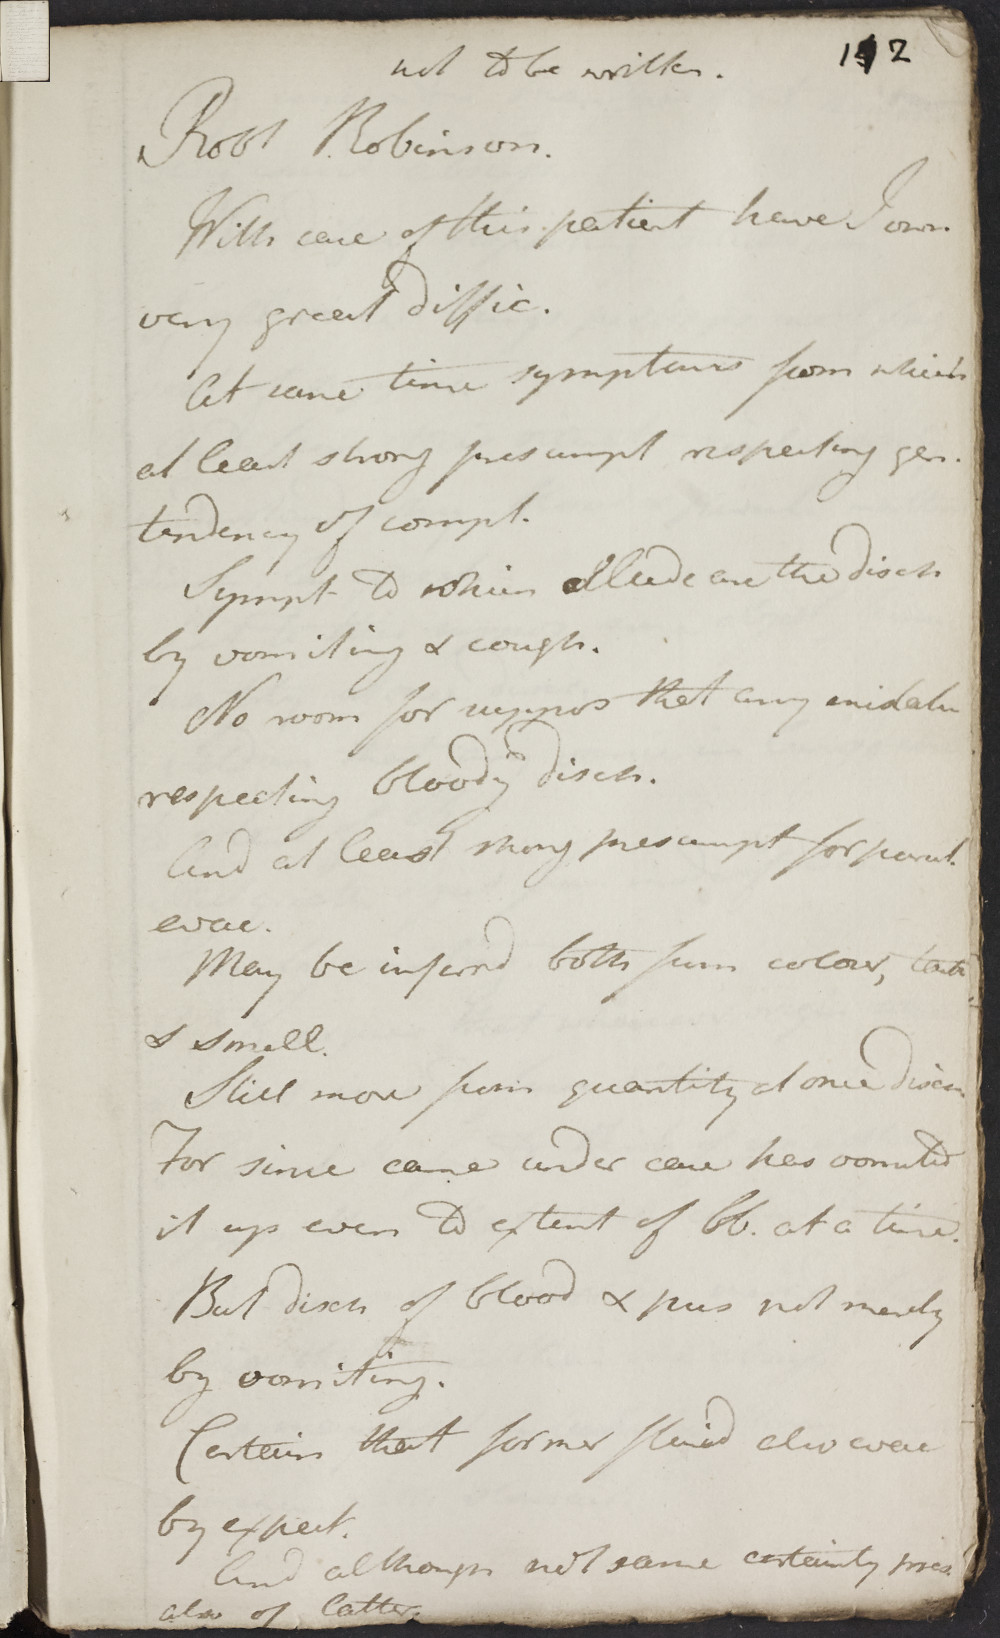 not to be written.
142
Robt Robinson.
With case of this patient have I own
very great diffic.
At same time symptoms from which
at least strong presumpt respecting gen.
tendency of compl.
Sympt to which allude are the disch
by vomiting & cough.
No room for suppos that any mistake
respecting bloody disch.
And at least strong presumpt for purul.
evac.
May be inferrd both from colour, taste
& smell.
Still more from quantity at once disch.
For since came under care has vomited
it up even to extent of lb. at a time.
But disch of blood & pus not merely
by vomiting.
Certain that former fluid also evac
by expect.
And although not same certainty pres.
also of latter.